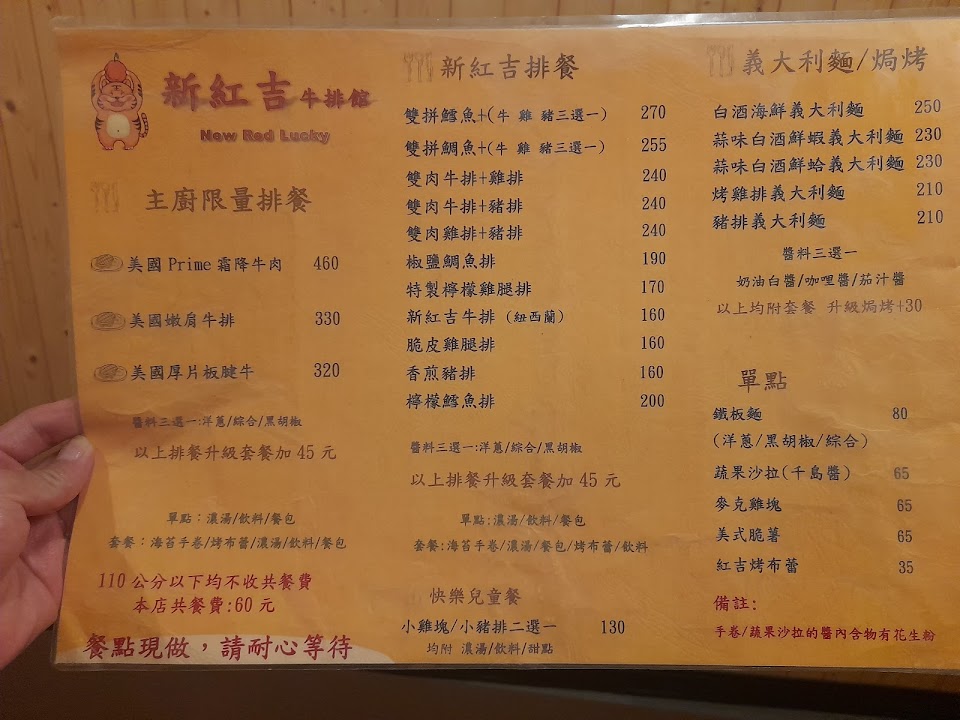 新紅吉牛排館
New Red Lucky
主廚限量排餐
美國Prime霜降牛肉 460
美國嫩肩牛排 330
美國厚片板腱牛 320
醬料三選一:洋蔥/綜合/黑胡椒
以上排餐升級套餐加45元
單點：濃湯/飲料/餐包
套餐：海苔手卷/烤布蕾/濃湯/飲料/餐包
110公分以下均不收共餐費
本店共餐費:60元
餐點現做，請耐心等待
新紅吉排餐
雙拼鱈魚+(牛 雞 豬三選一) 270
雙拼鯛魚+(牛 雞 豬三選一) 255
雙肉牛排+雞排 240
雙肉牛排+豬排 240
雙肉雞排+豬排 240
椒鹽鯛魚排 190
特製檸檬雞腿排 170
新紅吉牛排 (紐西蘭) 160
脆皮雞腿排 160
香煎豬排 160
檸檬鱈魚排 200
醬料三選一:洋蔥/綜合/黑胡椒
以上排餐升級套餐加45元
單點:濃湯/飲料/餐包
套餐:海苔手卷/濃湯/餐包/烤布蕾/飲料
快樂兒童餐
小雞塊/小豬排二選一 130
均附 濃湯/飲料/甜點
義大利麵/焗烤
白酒海鮮義大利麵 250
蒜味白酒鮮蝦義大利麵 230
蒜味白酒鮮蛤義大利麵 230
烤雞排義大利麵 210
豬排義大利麵 210
醬料三選一
奶油白醬/咖哩醬/茄汁醬
以上均附套餐 升級焗烤+30
單點
鐵板麵 80
(洋蔥/黑胡椒/綜合)
蔬果沙拉(千島醬) 65
麥克雞塊 65
美式脆薯 65
紅吉烤布蕾 35
備註:
手卷/蔬果沙拉的醬內含物有花生粉